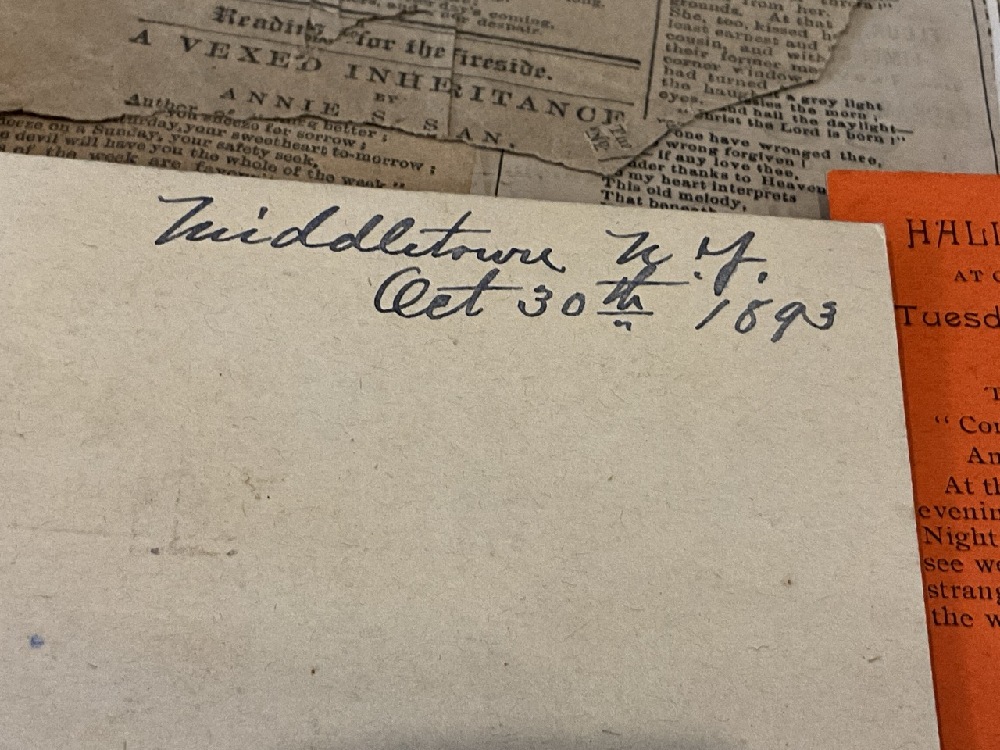 day's coming,
our despair.
Reading for the Fireside.
A VEXED INHERITANCE
BY
ANNIE S. S AN.
better;
your sweetheart to-morrow;
on a Sunday, your safety seek,
devil will have you the whole of the week."
of the week are
from her.
grounds. At that
She, too, kissed
least earnest and
cousin, and with
their former
corner window
had turned
the
eyes.
a grey light
the morn;
and hail the daylight—
Christ the Lord is born!"
one have wronged thee,
wrong forgiven!
if any love thee,
thanks to Heaven
my heart interprets
This old melody,
That
Middletown N.Y.
Oct 30th 1893
HALL
AT
Tuesd
"Con
An
At th
evenin
Night
see we
strang
the w